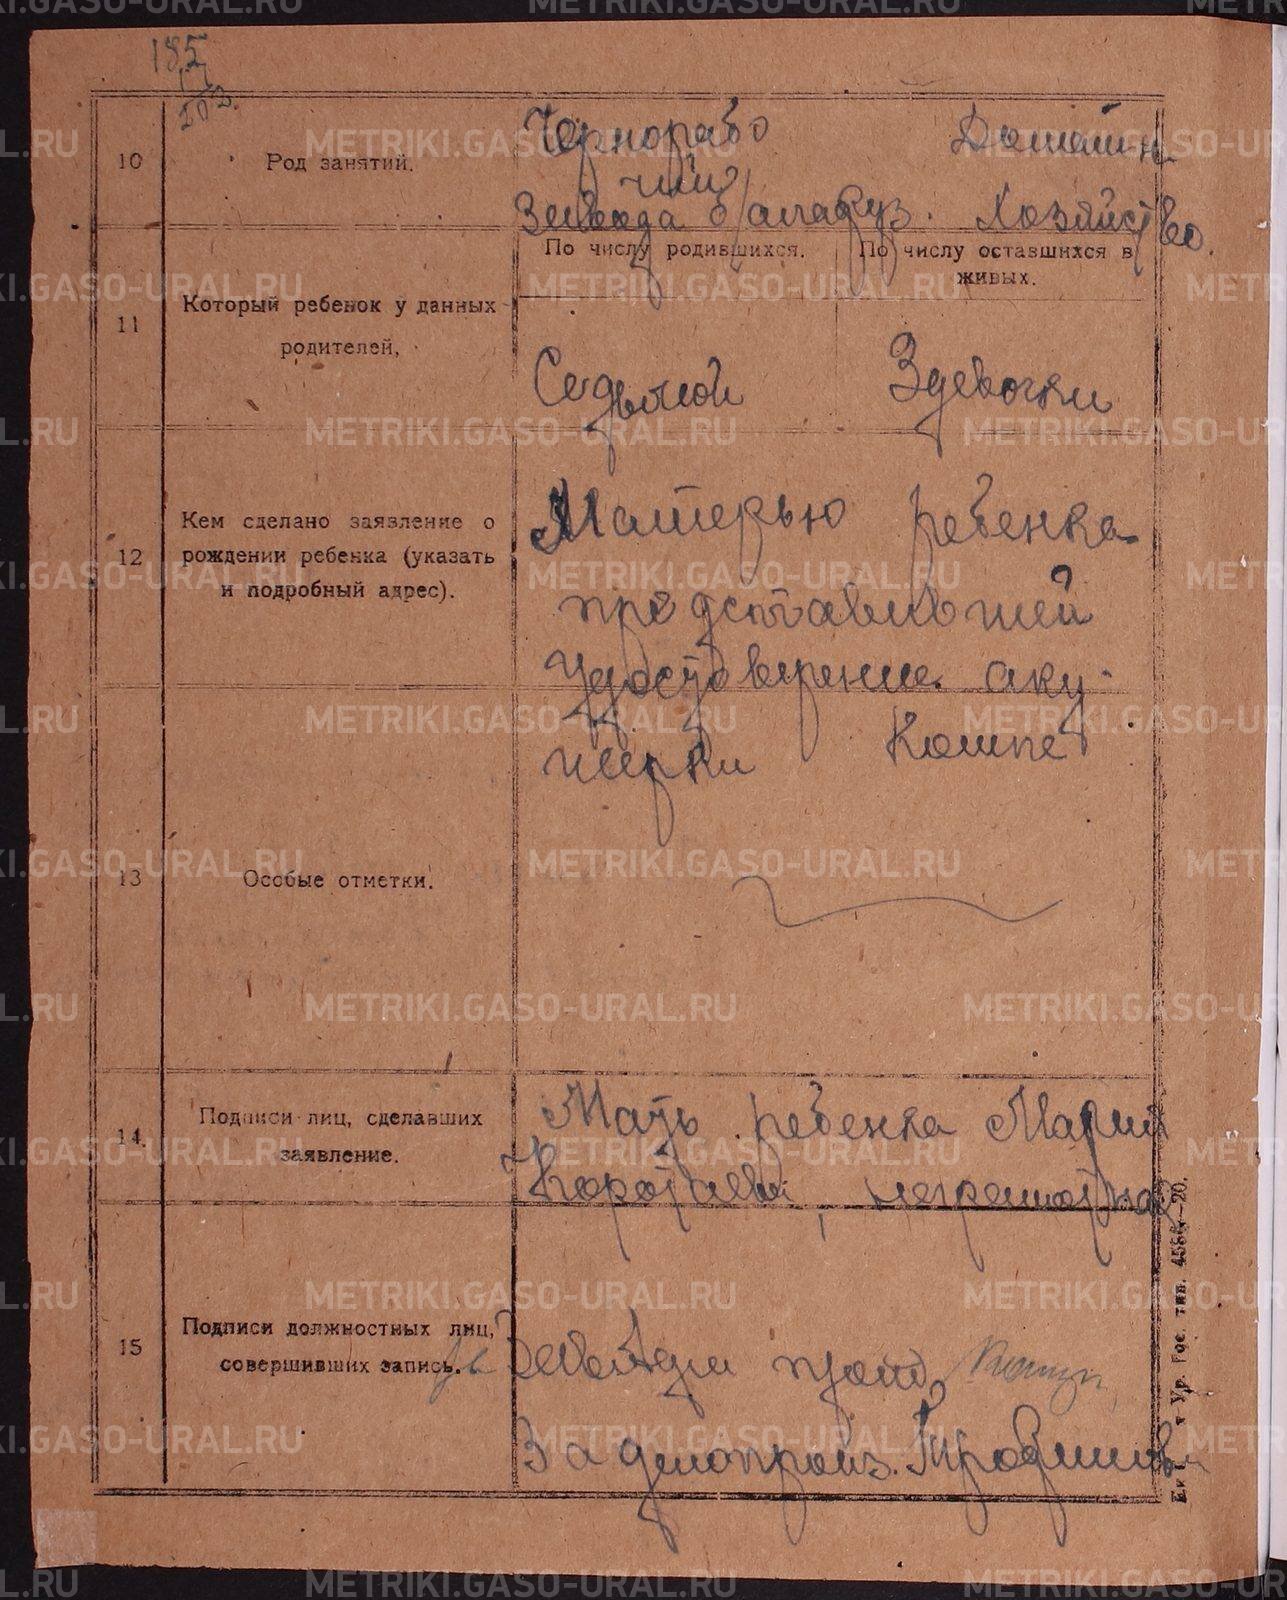 185
10 Род занятий.
Чернорабо
чий
Завода
Домашн.
Хозяйство.
11 Который ребенок у данных
родителей,
По числу родившихся.
По числу оставшихся в
живых.
Седьмой
3 девочки
12 Кем сделано заявление о
рождении ребенка (указать
и подробный адрес).
Матерью ребенка
представившей
Удостоверение аку-
шерки
13 Особые отметки.
14. Подписи лиц, сделавших
заявление.
Мать ребенка Мария
неграмотная
15 Подписи должностных лиц,
совершивших запись.
За делопроизв.
Ур. Гос. тип. 20.
METRIKI.GASO-URAL.RU